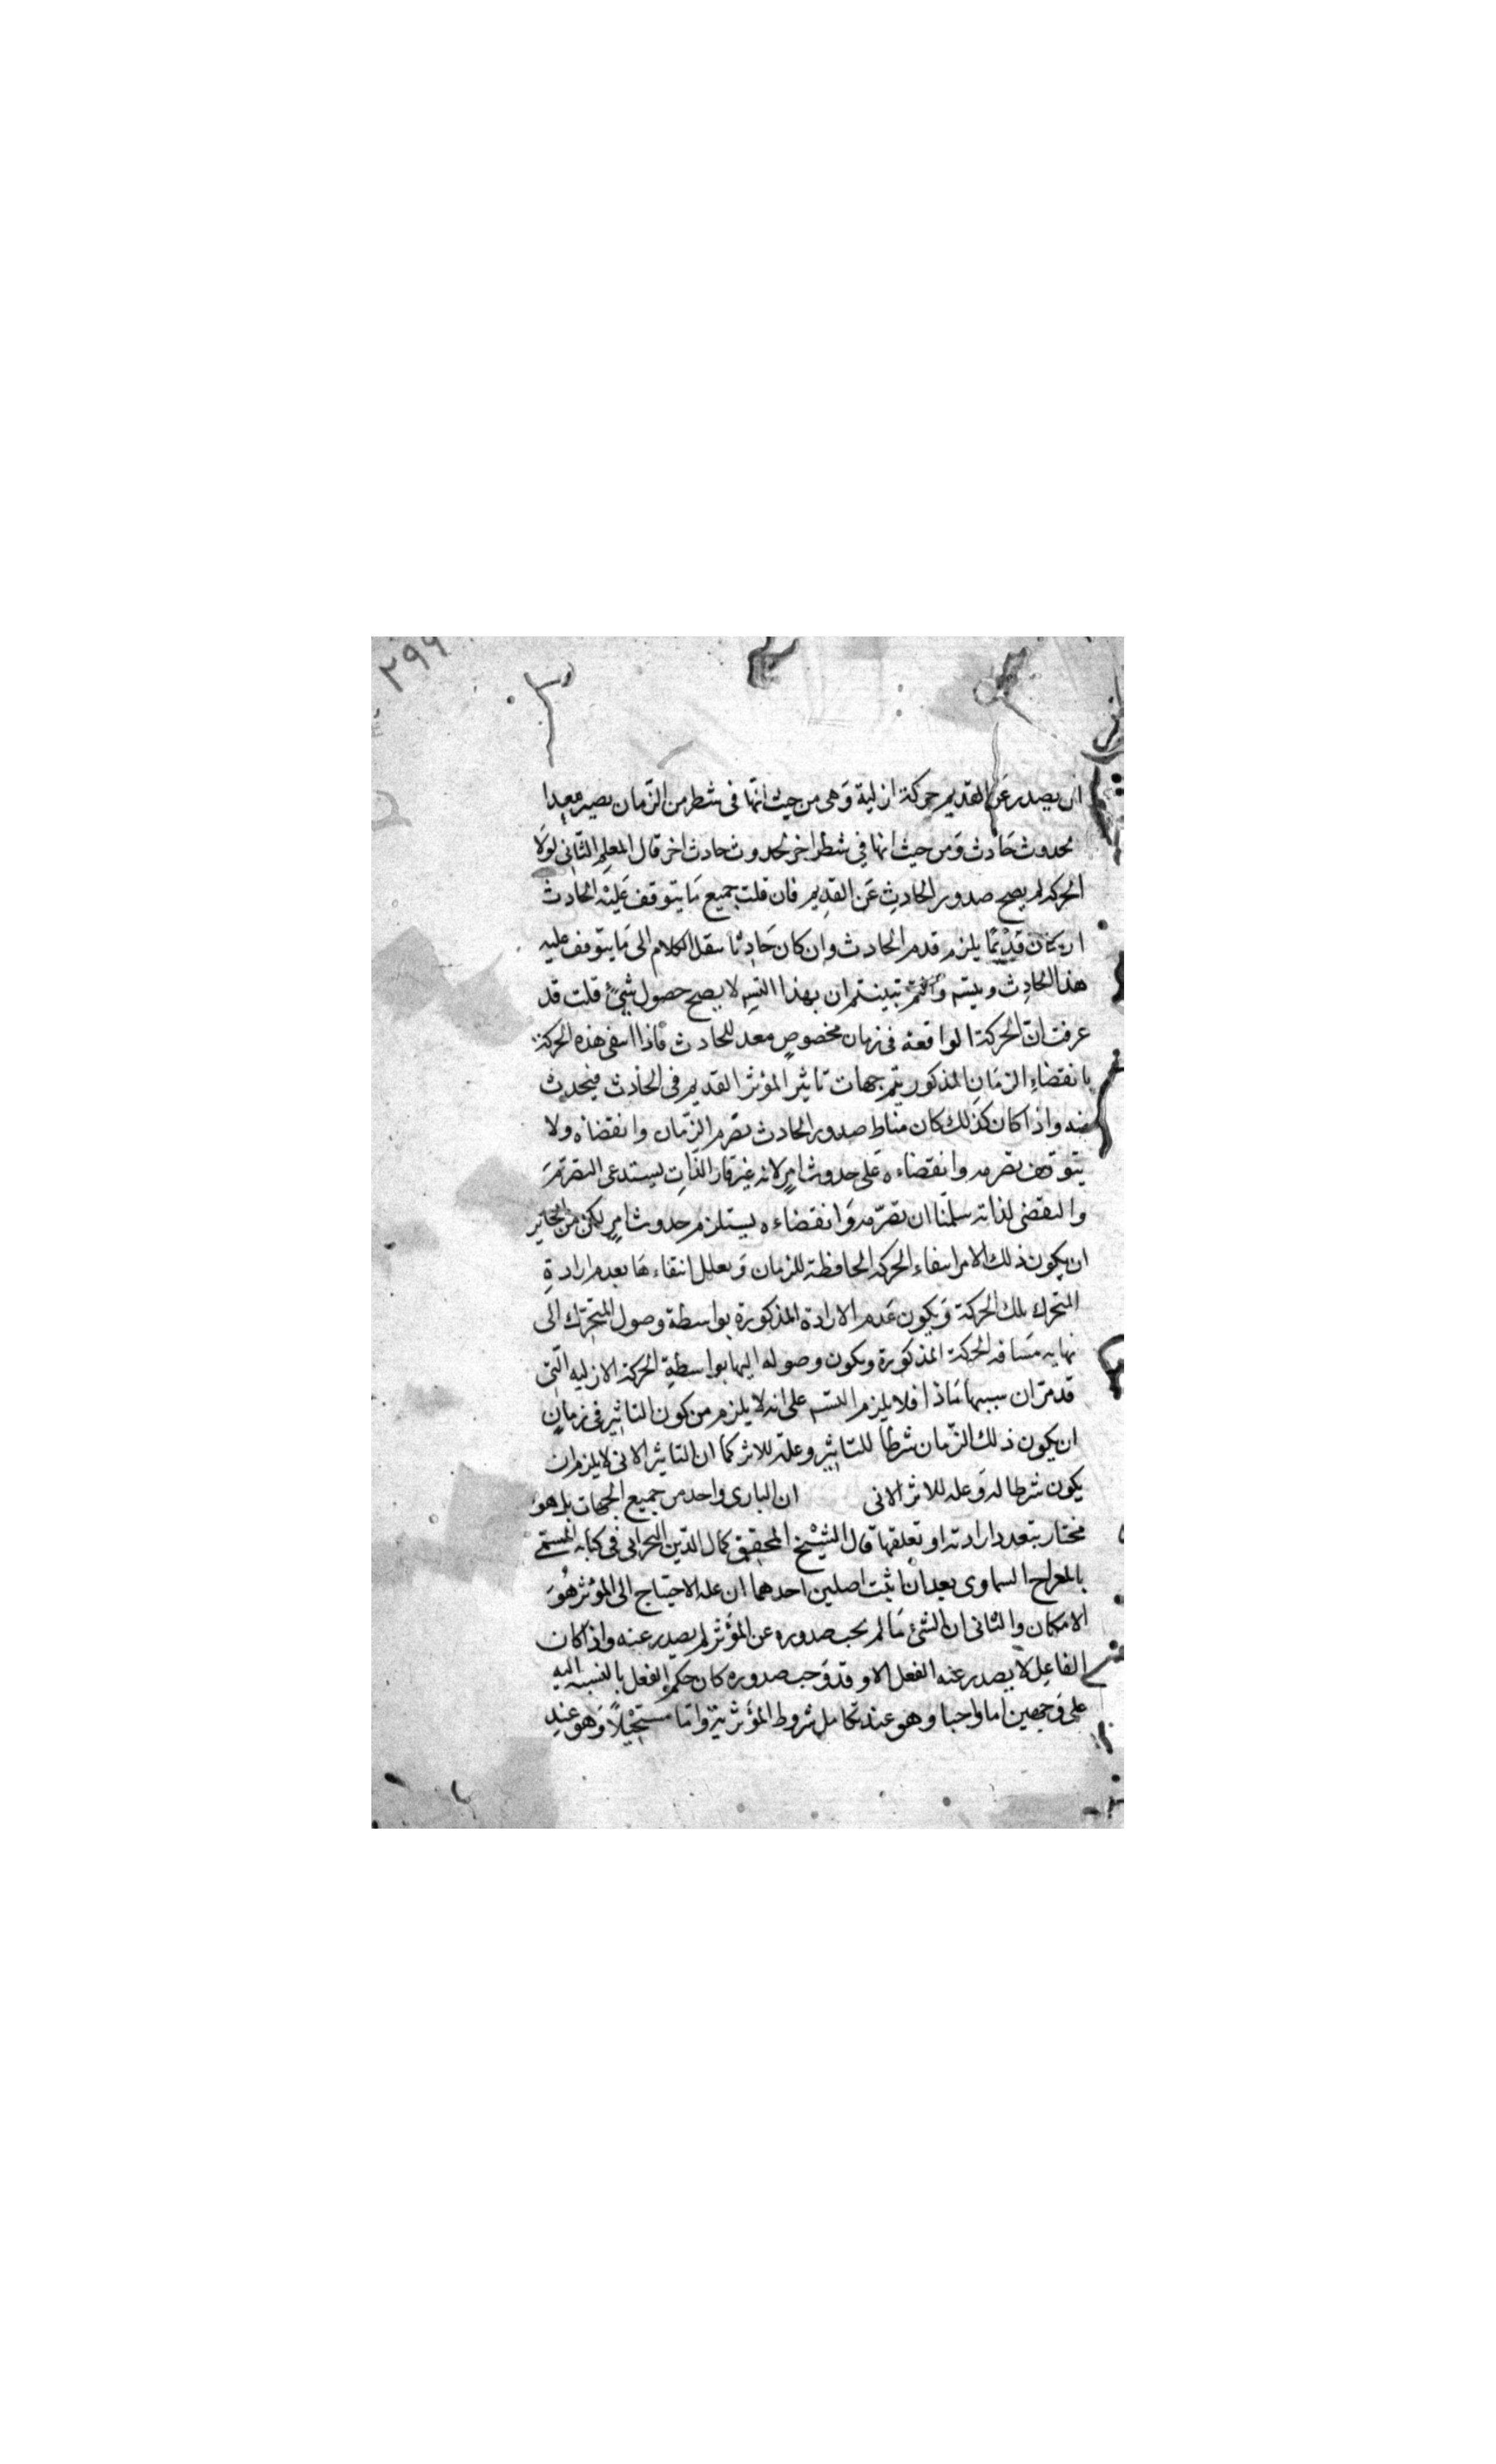 ٢٩٩
ان يصدر عن القديم حركة ازلية وهى من حيث انها فى شطر من الزمان يصير معدا
لحدوث حادث ومن حيث انها فى شطر اخر لحدوث حادث اخر قال المعلم الثانى لولا
الحركه لم يصح صدور الحادث عن القديم فان قلت جميع ما يتوقف عليه الحادث
ان كان قديما يلزم قدم الحادث وان كان حادثا ننقل الكلام الى ما يتوقف عليه
هذا الحادث ويتسم وانتم تبينتم ان بهذا التسم لا يصح حصول شئ قلت قد
عرفت ان الحركة الواقعه فى زمان مخصوص معد للحادث فاذا انتفى هذه الحركة
بانقضاء الزمان المذكور يتم جهات تاثير المؤثر القديم فى الحادث فيحدث
منه واذا كان كذلك كان مناط صدور الحادث تصرم الزمان وانقضاه ولا
يتوقف تصرمه وانقضاءه على حدوث امر لانه غير قار الذات يستدعى التصرم
والتقضى لذاته سلمنا ان تصرمه وانقضاءه يستلزم حدوث امر لكن من الجائز
ان يكون ذلك الامر انتفاء الحركه الحافظة للزمان ويعلل انتفاءها بعدم ارادة
المتحرك تلك الحركة ويكون عدم الارادة المذكورة بواسطة وصول المتحرك الى
نهايه مسافه الحركة المذكورة ويكون وصوله اليها بواسطة الحركة الازليه التى
قد مر ان سببها ماذا فلا يلزم التسم على انه لا يلزم من كون التاثير فى زمان
ان يكون ذلك الزمان شرطا للتاثير وعلة للاثر كما ان التاثير الانى لا يلزم ان
يكون شرطا له وعله للاثر الانى ان البارى واحد من جميع الجهات بل هو
مختار بتعدد ارادته او تعلقها قال الشيخ المحقق كمال الدين البحرانى فى كتابه المسمى
بالمعراج السماوى بعد ان اثبت اصلين احدهما ان عله الاحتياج الى المؤثر هو
الامكان والثانى ان الشئ ما لم يجب صدوره عن المؤثر لم يصدر عنه واذا كان
الفاعل لا يصدر عنه الفعل الا وقد وجب صدوره كان حكم الفعل بالنسبه اليه
على وجهين اما واجبا وهو عند تكامل شروط المؤثرية واما مستحيلا وهو عند